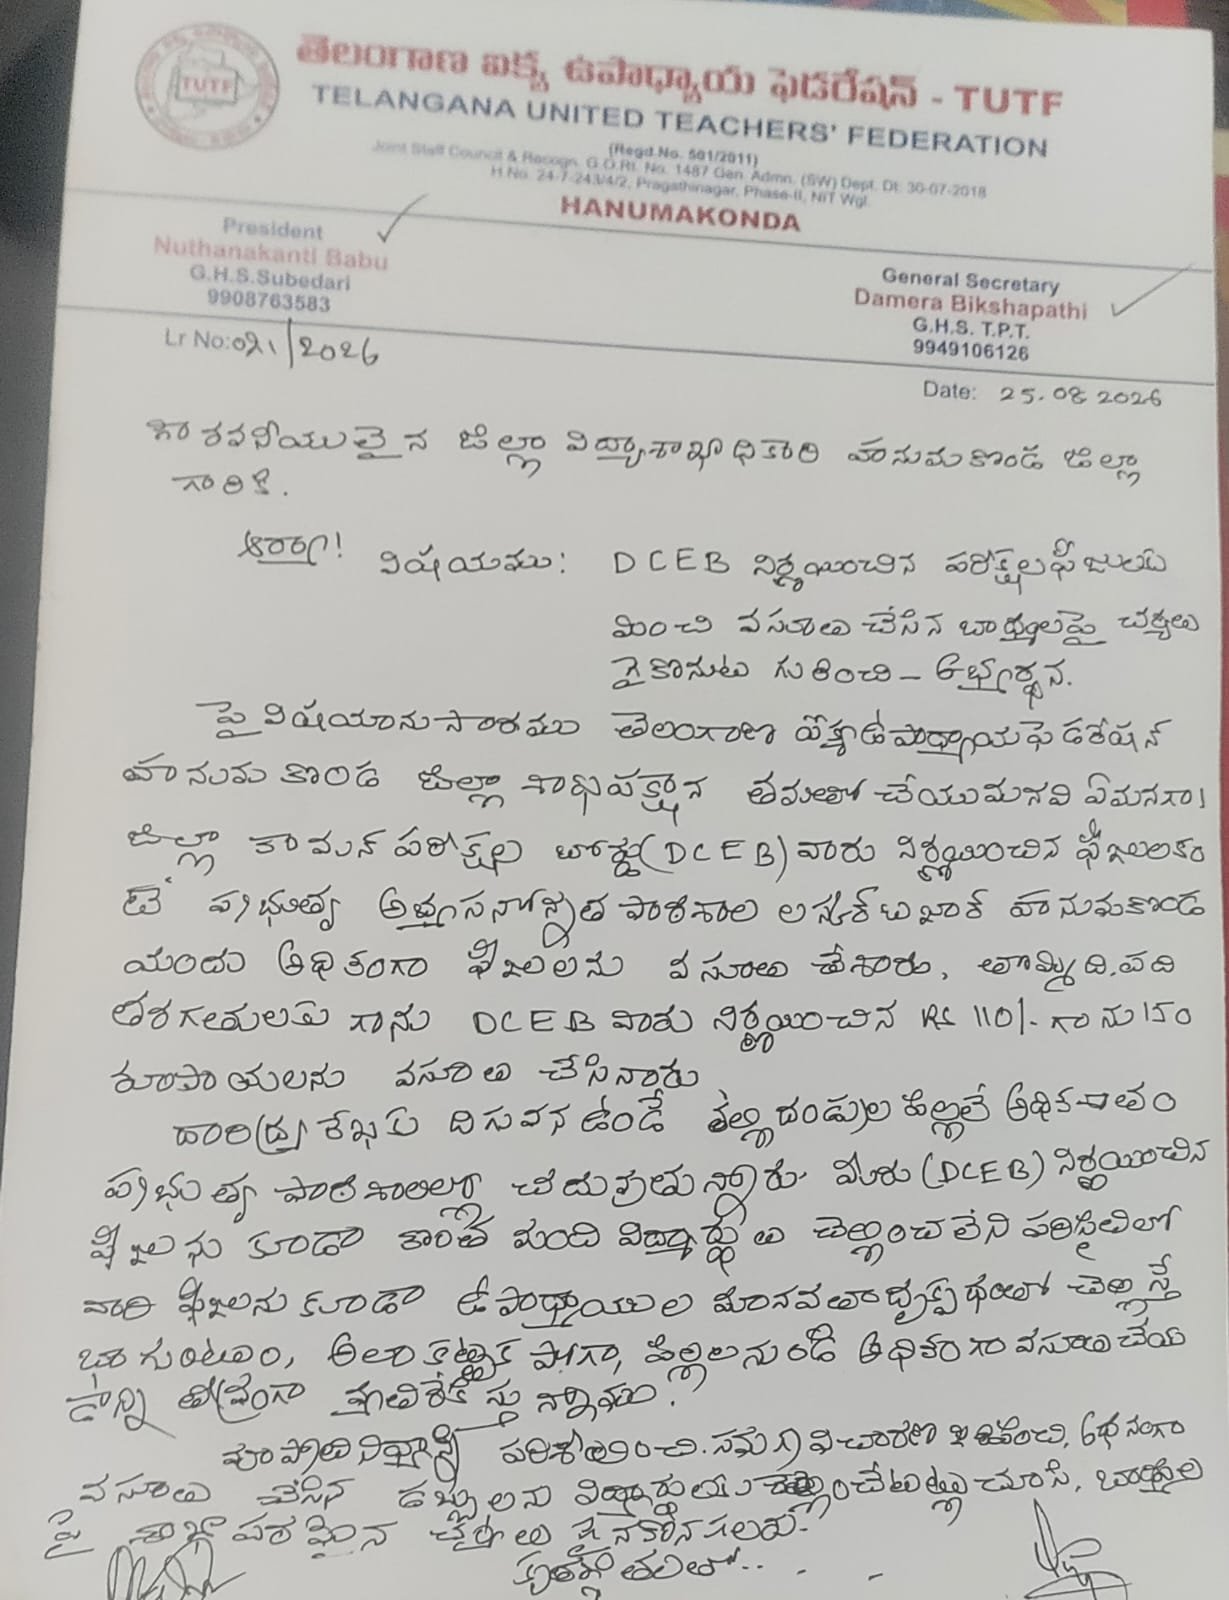 తెలంగాణ ఐక్య ఉపాధ్యాయ ఫెడరేషన్ - TUTF
TUTF
TELANGANA UNITED TEACHERS' FEDERATION
(Regd.No. 501/2011)
Joint Staff Council & Recogn. G.O.Rt. No. 1487 Gen. Admn. (SW) Dept. Dt: 30-07-2018
H.No. 24-7-243/4/2, Pragathinagar, Phase-II, NIT Wgl.
HANUMAKONDA
President
Nuthanakanti Babu
G.H.S.Subedari
9908763583
General Secretary
Damera Bikshapathi
G.H.S. T.P.T.
9949106126
Lr No:021/2026
Date: 25.08 2026
గౌరవనీయులైన జిల్లా విద్యాశాఖాధికారి హనుమకొండ జిల్లా
గారికి.
ఆర్యా!
విషయము: DCEB నిర్ణయించిన పరీక్షల ఫీజులకు
మించి వసూలు చేసిన బాధ్యులపై చర్యలు
గైకొనుట గురించి - అభ్యర్థన.
పై విషయానుసారము తెలంగాణ ఐక్య ఉపాధ్యాయ ఫెడరేషన్
హనుమకొండ జిల్లా శాఖ పక్షాన తమతో చేయు మనవి ఏమనగా।
జిల్లా కామన్ పరీక్షల బోర్డు (DCEB) వారు నిర్ణయించిన ఫీజులకం
టే ప్రభుత్వ అభ్యసనోన్నత పాఠశాల లష్కర్ బజార్ హనుమకొండ
యందు అధికంగా ఫీజులను వసూలు చేశారు, తొమ్మిది. పది
తరగతులకు గాను DCEB వారు నిర్ణయించిన Rs 110/- గాను 150
రూపాయలను వసూలు చేసినారు
దారిద్ర్య రేఖకు దిగువన ఉండే తల్లిదండ్రుల పిల్లలే అధిక శాతం
ప్రభుత్వ పాఠశాలల్లో చదువుతున్నారు. మీరు (DCEB) నిర్ణయించిన
ఫీజులను కూడా కొంత మంది విద్యార్థులు చెల్లించలేని పరిస్థితిలో
వారి ఫీజులను కూడా ఉపాధ్యాయుల మానవతా దృక్పథంతో చెల్లిస్తే
బాగుంటుం, అలా కట్టకపోగా, పిల్లలనుండి అధికంగా వసూలు చేయ
డాన్ని తీవ్రంగా వ్యతిరేకిస్తున్నాము.
పరిశీలించి. సమగ్ర విచారణ జరిపించి, అధనంగా
వసూలు చేసిన డబ్బులను విద్యార్థులకు చెల్లించేటట్లు చూసి, బాధ్యుల
పై శాఖాపరమైన చర్యలు గైకొనగలరు.
కృతజ్ఞతలతో...